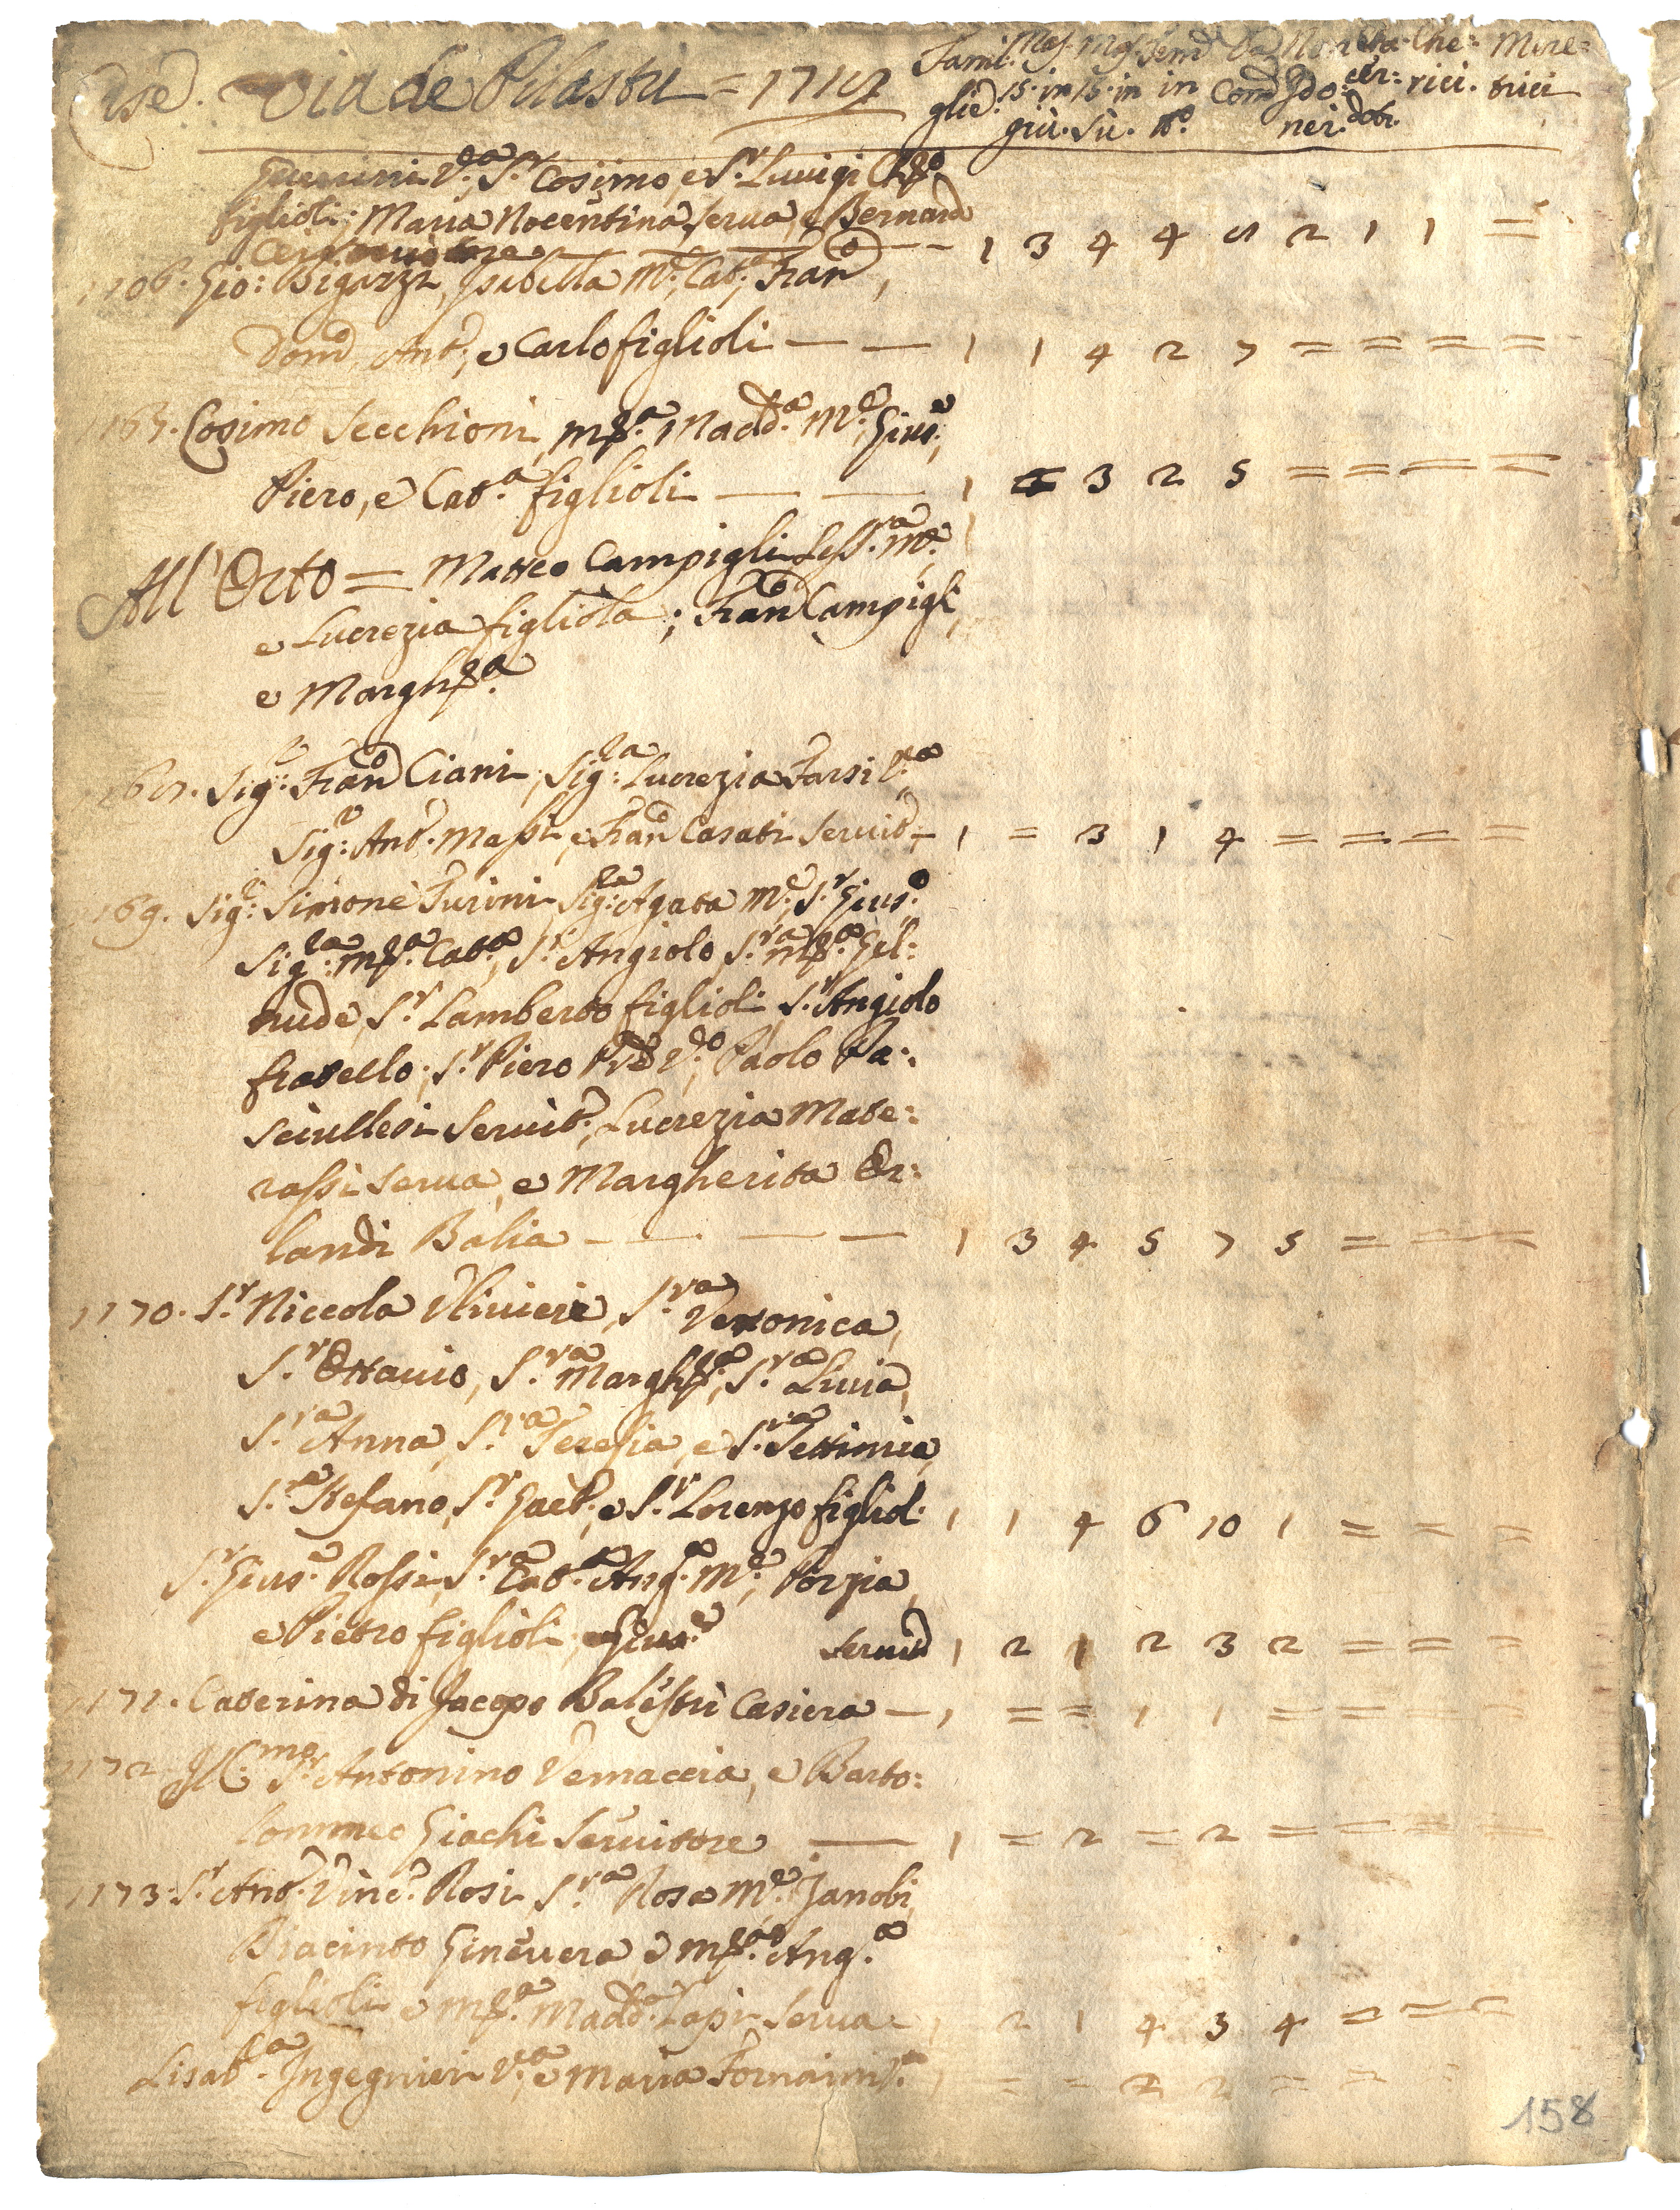 Case. Via de Pilastri = 1717
Famiglie. Mas. 15. in giù. Mas. 15. in sù. Fem. in n.° Da Com. Non Com. Sacerdoti. Cherici. Meretrici
Guerrini V.a, S.r Cosimo, e S.r Luigi Ch.co
figlioli; Maria Nocentina serva, e Bernard.o
1 3 4 4 2 1 1 =
1106. Gio: Bigazzi, Isabella M.e, Cat.a, Fran.co,
Dom.co Ant.o, e Carlo figlioli — — 1 1 4 2 7 = = = =
1167. Cosimo Secchioni, M.a Madd.a M.e, Gius.e,
Piero, e Cat.a figlioli — — 1 3 2 5 = = = =
All'Orto = Matteo Campigli Less.ra M.e,
e Lucrezia figliola; Fran.co Campigli,
e Margh.ta
Sig.r Fran.co Ciani, Sig.ra Lucrezia Farsi V.a
Sig.r Ant.o Massi, e Fran.co Casati Servit.e — 1 = 3 1 4 = = = =
1169. Sig.r Simone Turini Sig.ra Agata M.e, S.r Gius.e
Sig.ra M.a Cat.a, S.r Angiolo, S.ra M.a Gel:
trude, S.r Lamberto figlioli, S.r Angiolo
fratello, S.r Piero Pre V.o, Paolo Pa:
sciullesi Servit.e, Lucrezia Mate:
rassi serva, e Margherita Or:
landi Balia — — — — 1 3 4 5 7 5 = = =
1170. S.r Niccola Ulivieri, S.ra Veronica,
S.r Ottavio, S.ra Margh.ta, S.ra Livia,
S.ra Anna, S.ra Teresia, e S.ra Settimia,
S.r Stefano, S.r Gaet.o, e S.r Lorenzo figliol. 1 1 4 6 10 1 = = =
S.r Gius.e Rossi, S.ra Cat.a Ang.a M.e, Porzia
e Pietro figlioli, e Gius.e Servit.e 1 2 1 2 3 2 = = =
1171. Caterina di Jacopo Balestri Casiera — 1 = = 1 1 = = = =
1172. Ill.mo S.r Antonino Vernaccia, e Barto:
lommeo Giachi Servitore — 1 = 2 = 2 = = = =
1173. S.r Ant.o Vinc.o Rosi S.ra Rosa M.e, Zanobi,
Giacinto Ginevera e M.a Ang.a
figlioli e M.a Madd.a Lapi Serva — 1 2 1 4 3 4 = = =
Lisab.ta Ingegnieri V.a, e Maria Fornaini 1 = = 2 2 = =
158